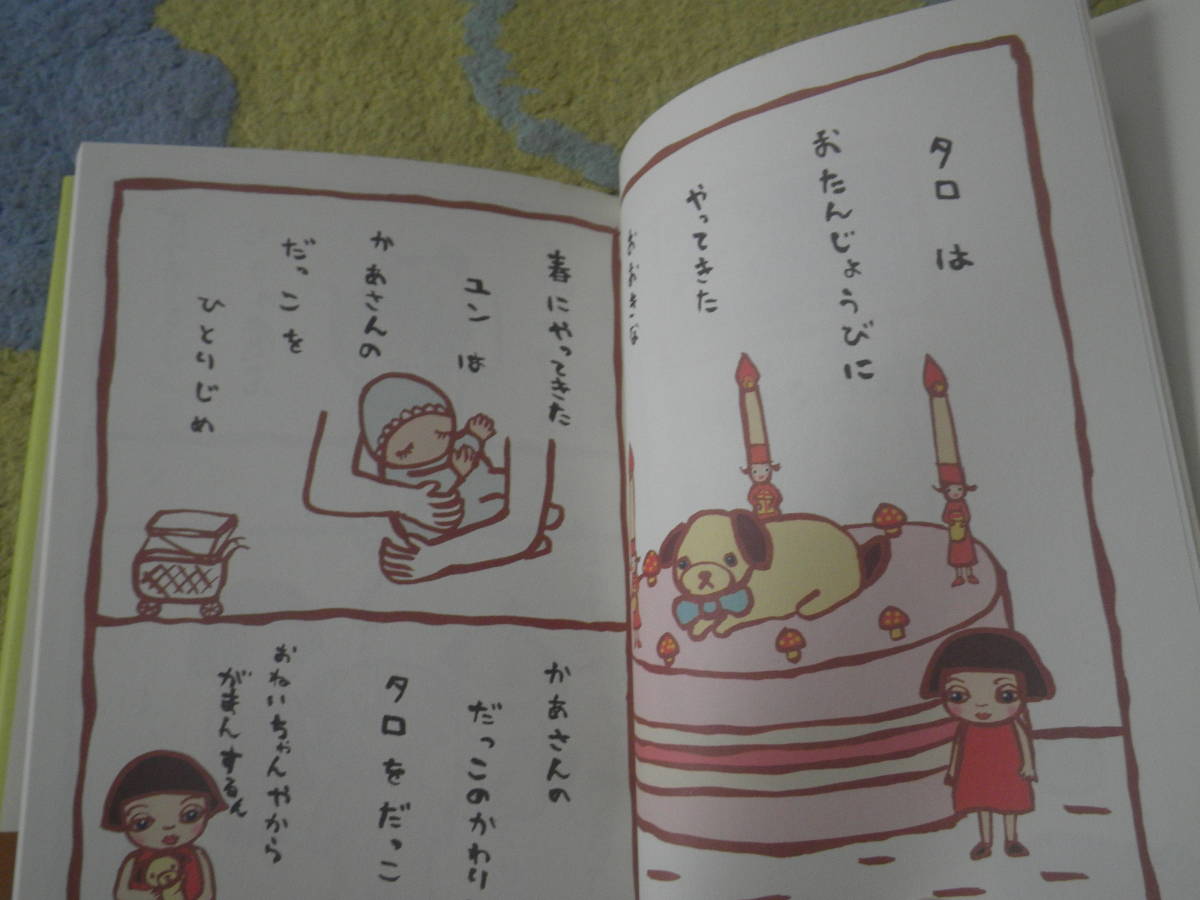 タロは
おたんじょうびに
やってきた
おおきな
春にやってきた
ユンは
かあさんの
だっこを
ひとりじめ
かあさんの
だっこのかわり
タロをだっこ
おねいちゃんやから
がまんするん